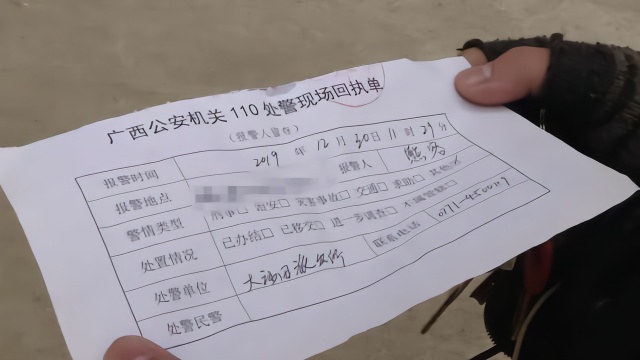 广西公安机关110处警现场回执单
（报警人留存）
报警时间 2019年12月30日11时29分
报警地点 报警人 熊
警情类型 刑事□ 治安□ 灾害事故□ 交通□ 求助□ 其他
处置情况 已办结□ 已移交□ 进一步调查□ 不属管辖□
处警单位 派出所 联系电话
处警民警